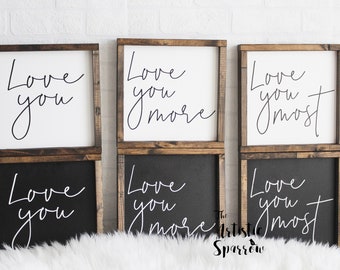 Love
you
Love
you
more
Love
you
most
Love
you
Love
you
more
Love
you
most
The
Artistic
Sparrow